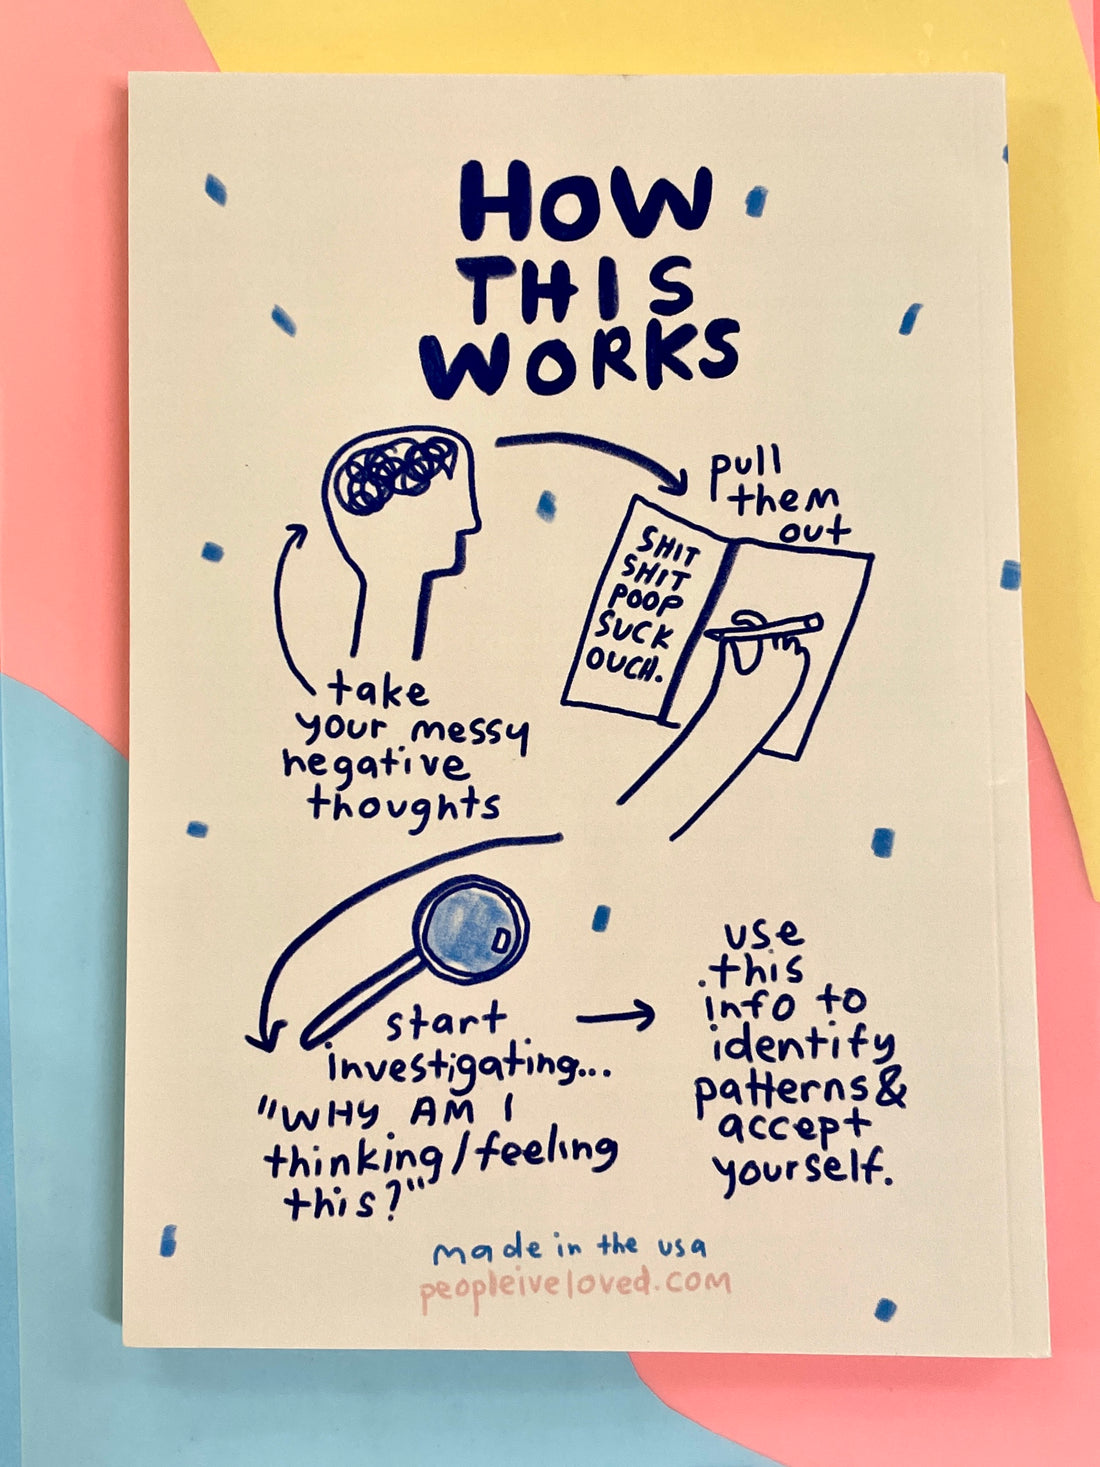 HOW
THIS
WORKS
take
your messy
negative
thoughts
pull
them
out
SHIT
SHIT
POOP
SUCK
OUCH.
start
investigating...
"WHY AM I
thinking/feeling
this?"
use
this
info to
identify
patterns &
accept
yourself.
made in the usa
peopleiveloved.com